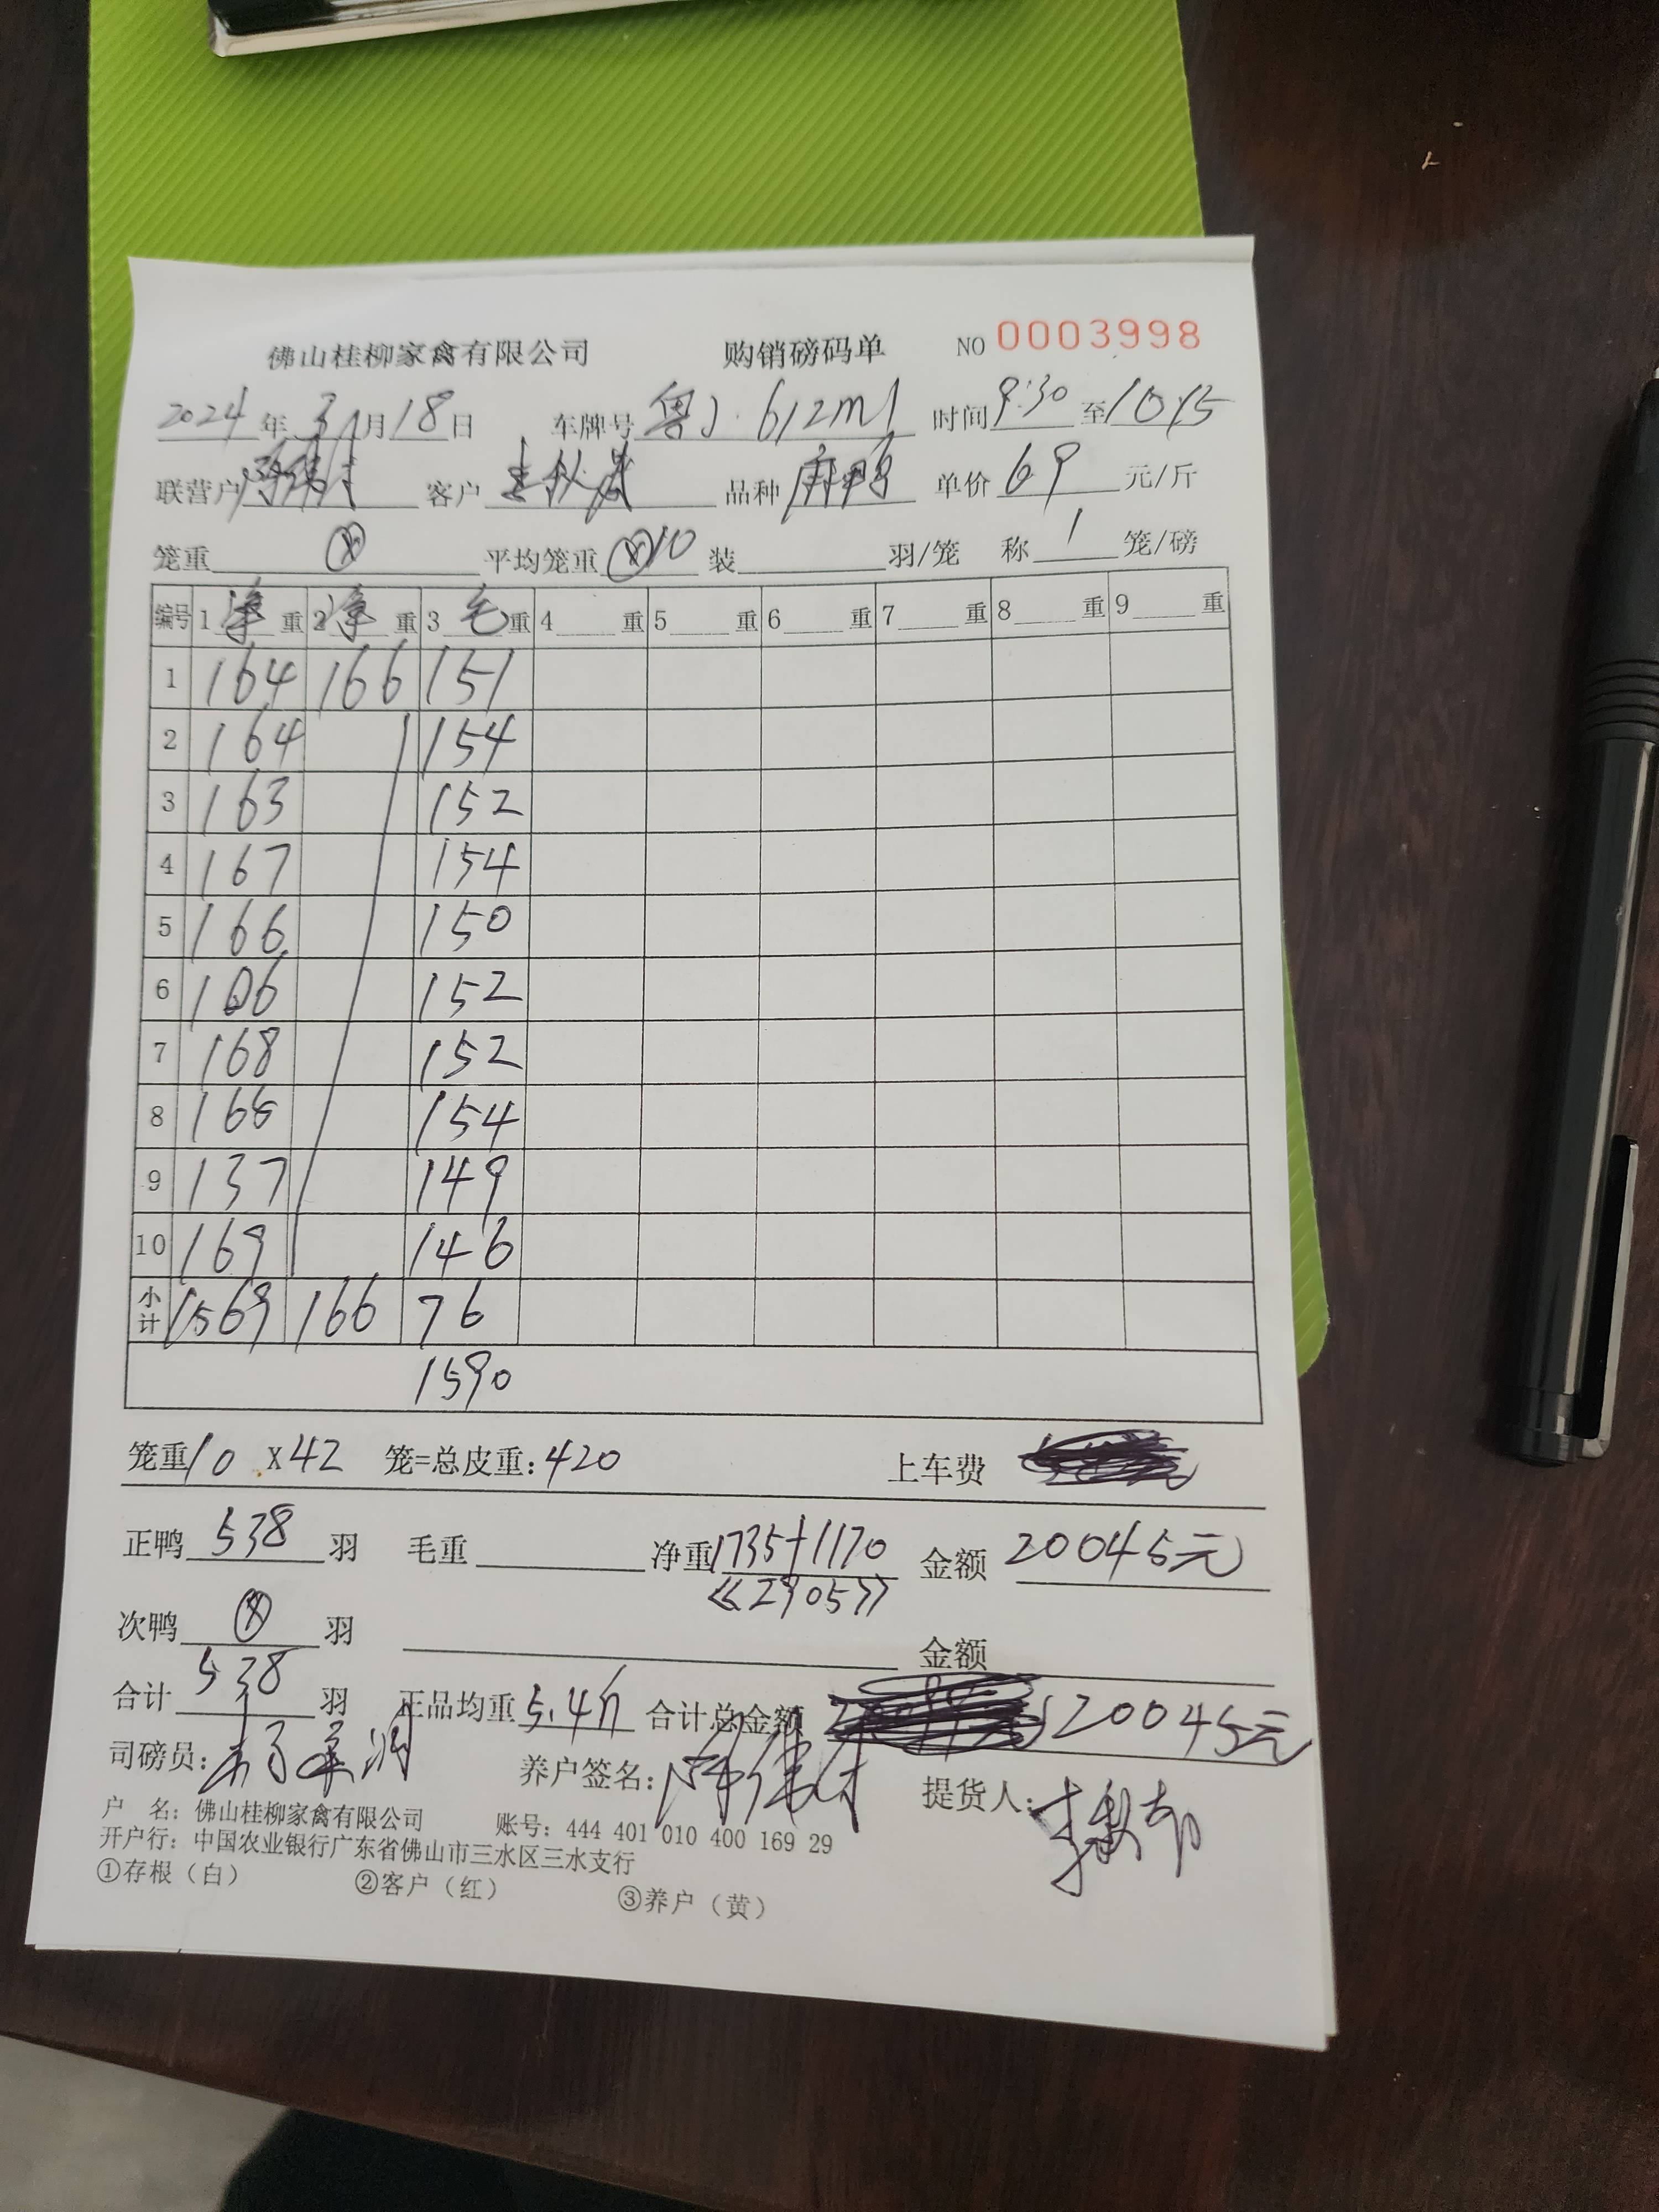 佛山桂柳家禽有限公司 购销磅码单 NO 0003998
2024年3月18日 车牌号 粤J·612m1 时间 9:30 至 10:15
联营户 客户 品种 麻鸭 单价 69 元/斤
笼重 ⊗ 平均笼重 ⊗10 装 羽/笼 称 1 笼/磅
编号 1 净 重 2 净 重 3 毛 重 4 重 5 重 6 重 7 重 8 重 9 重
1 164 166 151
2 164 154
3 163 152
4 167 154
5 166 150
6 106 152
7 168 152
8 166 154
9 137 149
10 169 146
小计 1569 166 76
1590
笼重 10 X 42 笼=总皮重: 420 上车费
正鸭 538 羽 毛重 净重 1735+1170 金额 20045元
《2905》
次鸭 ⊗ 羽 金额
合计 538 羽 正品均重 5.4斤 合计总金额 20045元
司磅员: 养户签名: 提货人:
户 名: 佛山桂柳家禽有限公司 账号: 444 401 010 400 169 29
开户行: 中国农业银行广东省佛山市三水区三水支行
①存根（白） ②客户（红） ③养户（黄）